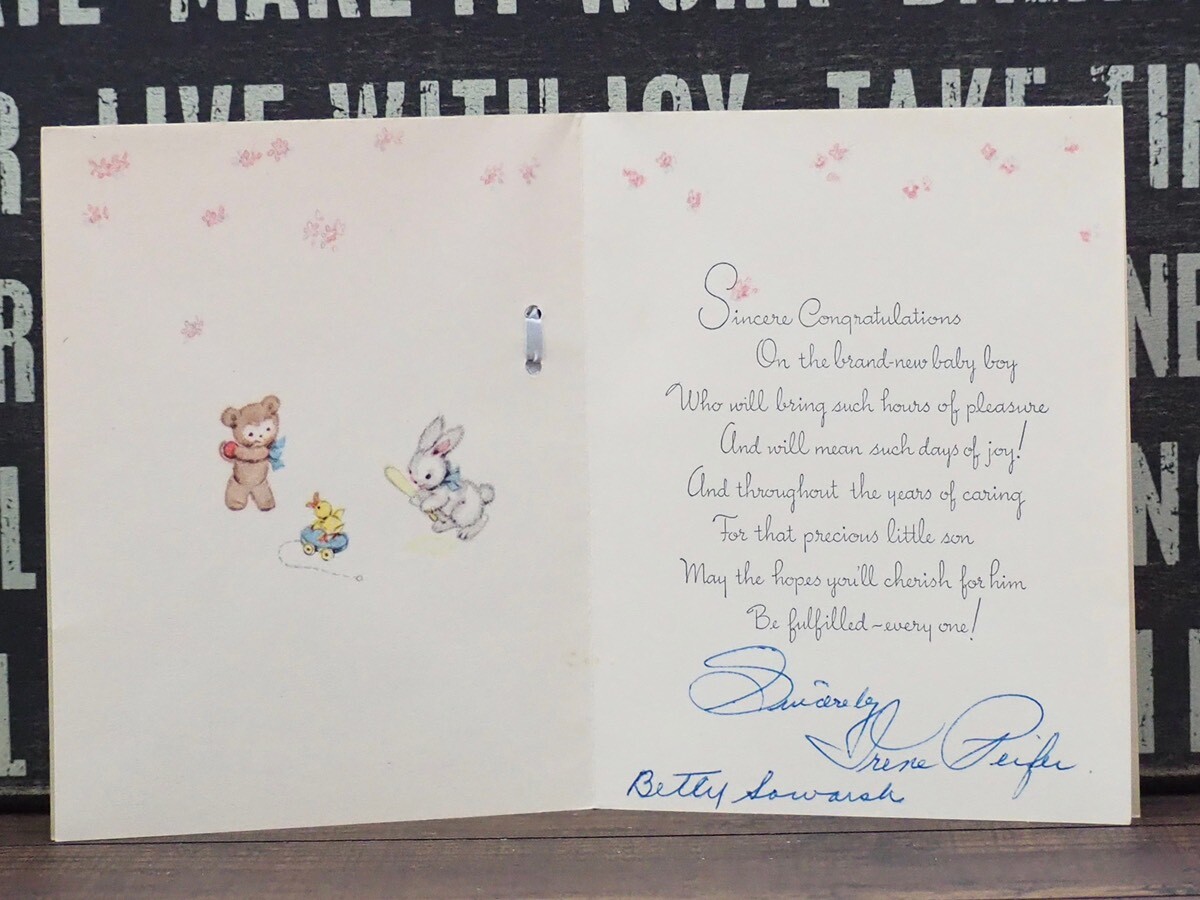 MAKE IT WORK
LIVE WITH JOY TAKE
Sincere Congratulations
On the brand-new baby boy
Who will bring such hours of pleasure
And will mean such days of joy!
And throughout the years of caring
For that precious little son
May the hopes you'll cherish for him
Be fulfilled—every one!
Sincerely
Irene Peifer
Betty